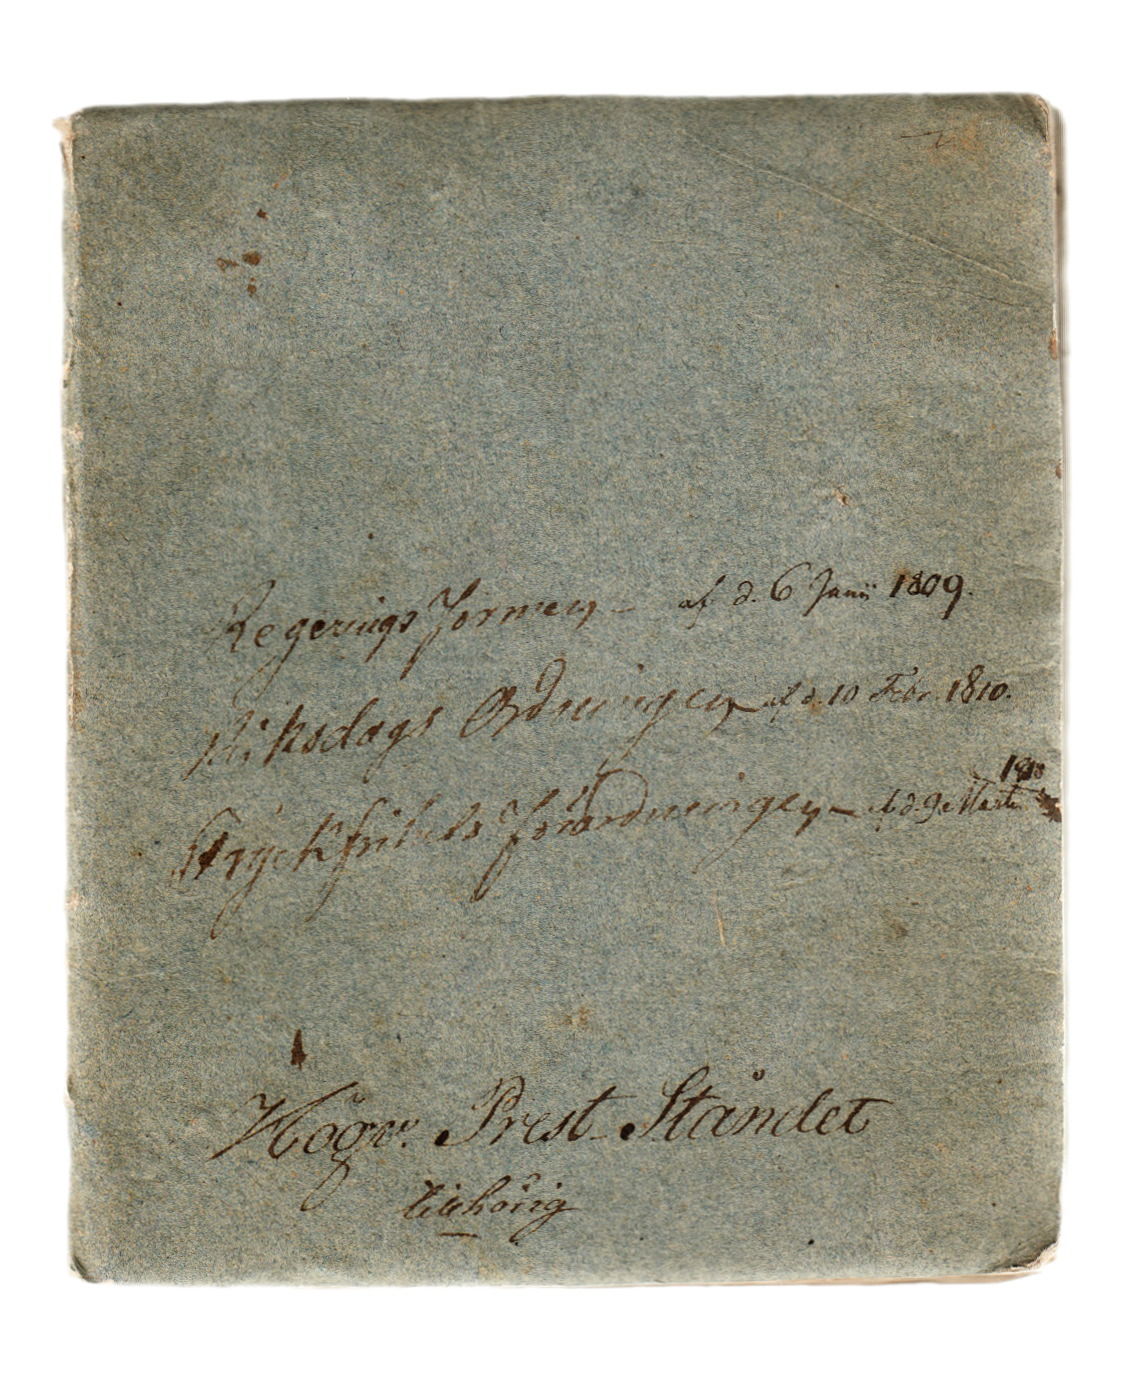 Regerings Formen – af d. 6 Junii 1809.
Riksdags Ordningen – af d. 10 Febr. 1810.
Tryckfrihets Förordningen – af d. 9 Martii 1810
Högv. Prest-Ståndet
tillhörig